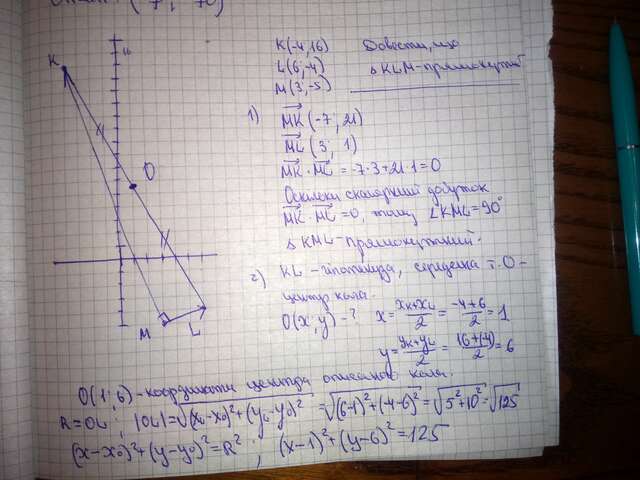 (7; 70)
K(-4,16) Довести, що
L(6;-4) △KLM-прямокутний
M(3;-5)
1) MK (-7; 21)
ML (3; 1)
MK · ML = -7·3+21·1=0
Оскільки скалярний добуток
MK · ML =0, тому ∠KML=90°
△KML-прямокутний.
2) KL -гіпотенуза, середина т. O -
центр кола.
O(x;y)-? x= xK+xL/2 = -4+6/2 = 1
y= yK+yL/2 = 16+(-4)/2 = 6
O(1; 6)-координати центра описаного кола.
R=OL; |OL|=√(xL-xO)²+(yL-yO)² =√(6-1)²+(-4-6)² =√5²+10² =√125
(x-x0)²+(y-y0)²=R², (x-1)²+(y-6)²=125
K
16
O
M
L